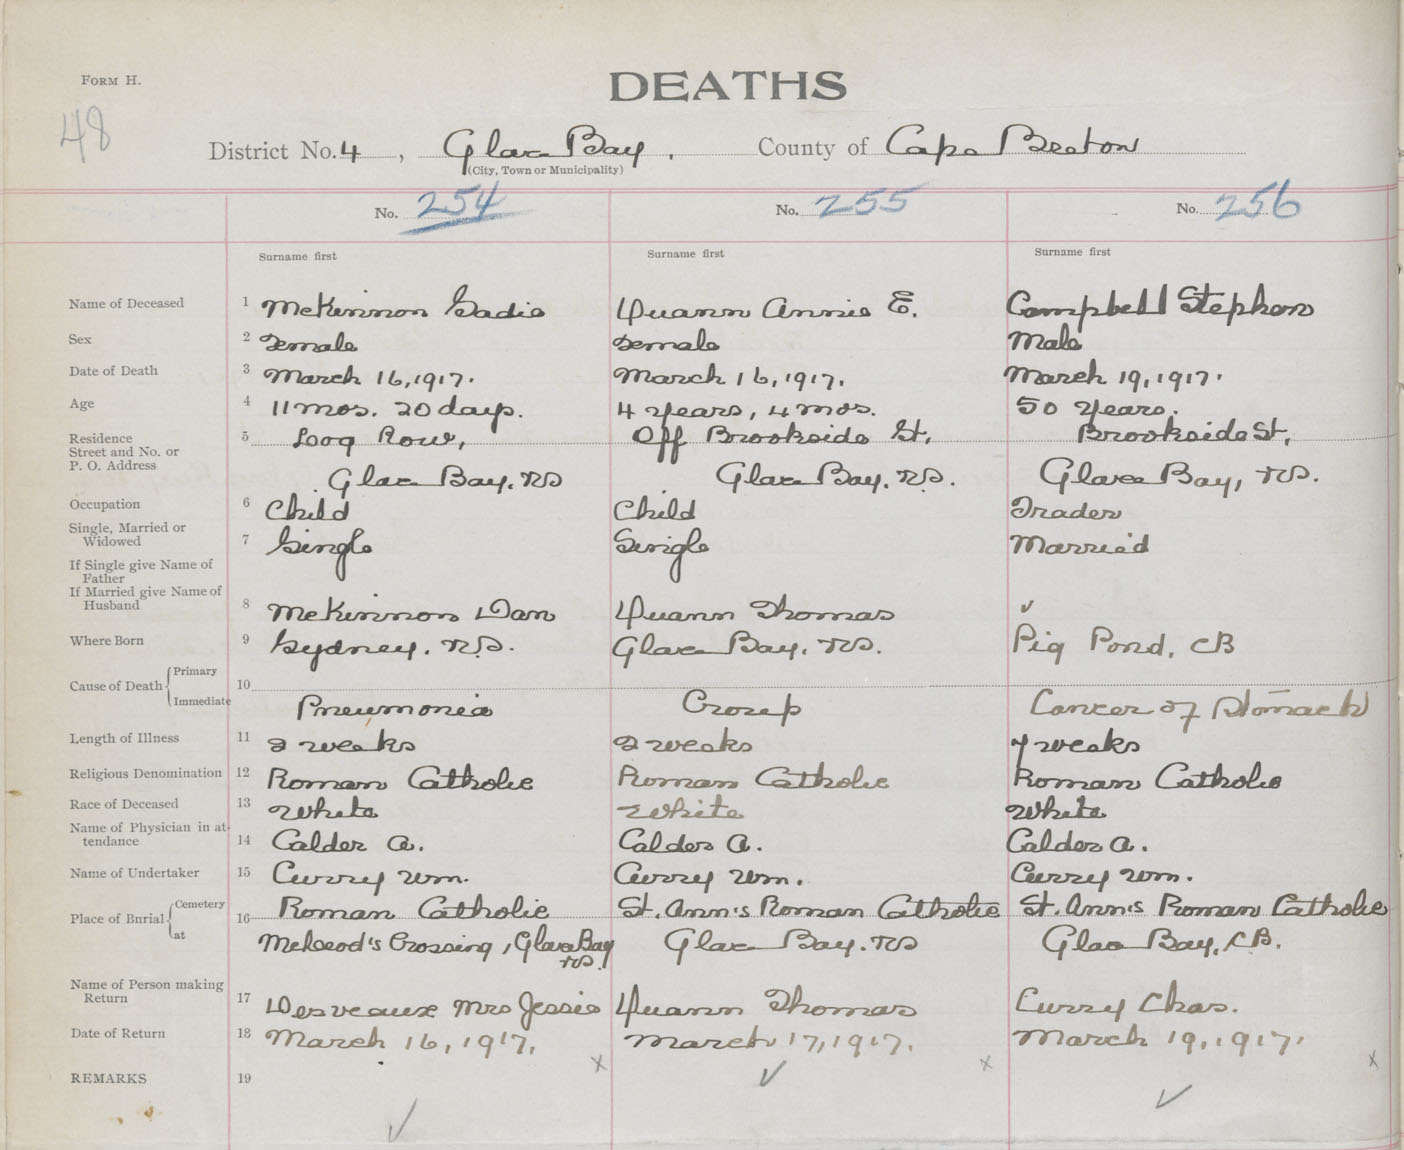 FORM H.
DEATHS
48
District No. 4, Glace Bay, County of Cape Breton
(City, Town or Municipality)
No. 254 No. 255 No. 256
Surname first Surname first Surname first
Name of Deceased 1 McKinnon Sadie Quann Annie E. Campbell Stephen
Sex 2 Female Female Male
Date of Death 3 March 16, 1917. March 16, 1917. March 19, 1917.
Age 4 11 mos. 20 days. 4 years, 4 mos. 50 years.
Residence 5 Log Row, Off Brookside St, Brookside St,
Street and No. or
P. O. Address Glace Bay, NS Glace Bay, NS. Glace Bay, NS.
Occupation 6 Child Child Trader
Single, Married or
Widowed 7 Single Single Married
If Single give Name of
Father
If Married give Name of
Husband 8 McKinnon Dan Quann Thomas ✓
Where Born 9 Sydney, N.S. Glace Bay, NS. Pig Pond, CB
Cause of Death Primary 10
Immediate Pneumonia Croup Cancer of Stomach
Length of Illness 11 2 weeks 2 weeks 7 weeks
Religious Denomination 12 Roman Catholic Roman Catholic Roman Catholic
Race of Deceased 13 White White White
Name of Physician in at-
tendance 14 Calder A. Calder A. Calder A.
Name of Undertaker 15 Curry Wm. Curry Wm. Curry Wm.
Place of Bnrial Cemetery 16 Roman Catholic St. Ann's Roman Catholic St. Ann's Roman Catholic
at McLeod's Crossing, Glace Bay NS. Glace Bay, NS Glace Bay, C.B.
Name of Person making
Return 17 Desveaux Mrs Jessie Quann Thomas Curry Chas.
Date of Return 18 March 16, 1917, March 17, 1917. March 19, 1917.
x x x
REMARKS 19 ✓ ✓ ✓